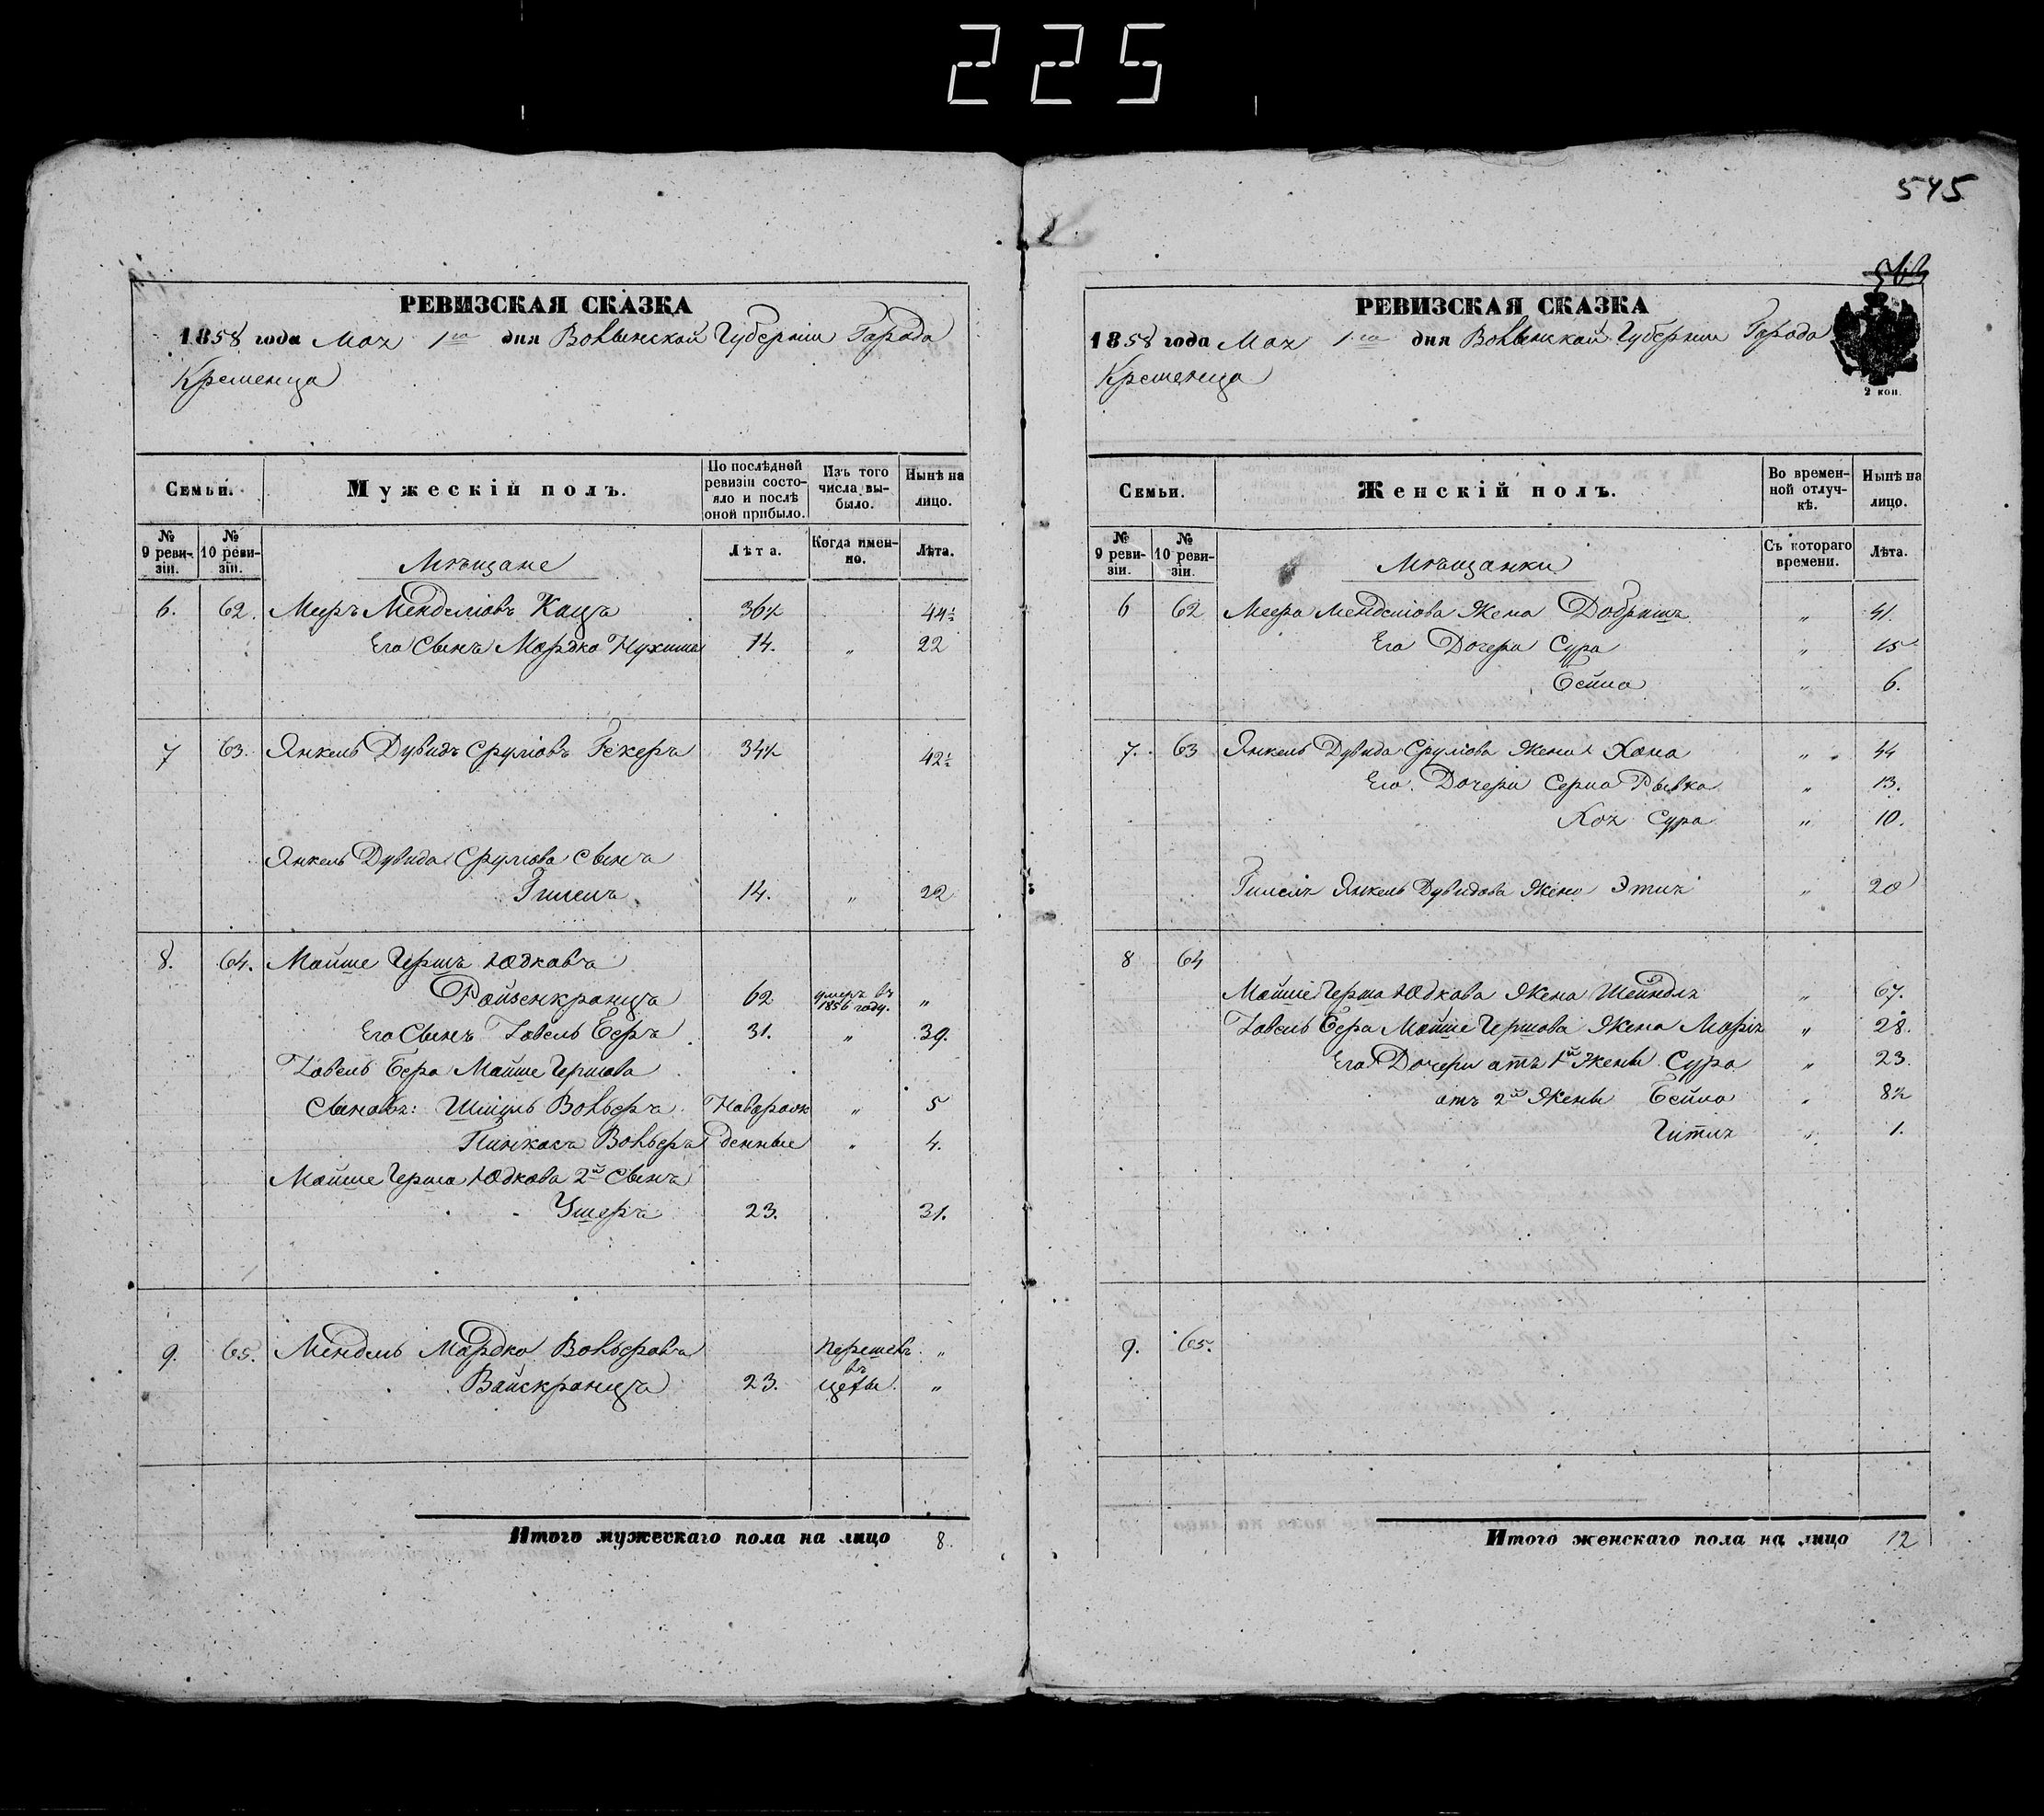 225
545
РЕВИЗСКАЯ СКАЗКА
1858 года Мая 1го дня Волынской Губерніи Города
Кременца
Семьи.
Мужескій полъ.
По послѣдней ревизіи состояло и послѣ оной прибыло.
Изъ того числа выбыло.
Нынѣ на лицо.
№ 9 ревизіи.
№ 10 ревизіи.
Мѣщане
Лѣта.
Когда именно.
Лѣта.
6. 62. Меръ Менделіовъ Кацъ 36½ 44½
Его Сынъ Мордко Нухимъ 14. " 22
7 63. Янкель Дувидъ Сруліовъ Гекеръ 34½ 42½
Янкель Дувида Срулова Сынъ
14. " 22
8. 64. Мойше Гершъ Юдковъ
Ройзенкранцъ 62 умеръ въ 1856 году. "
Его Сынъ Бееръ 31. " 39.
Бера Мойше Гершова
Сыновъ: Вольберъ Новорож " 5
Пинкасъ Вольберъ денные " 4.
Мойше Герша Юдкова 2й Сынъ
Ушеръ 23. 31.
9. 65. Мендель Мордко Вольберовъ "
Вайскранцъ 23. Перешелъ въ цехы. "
Итого мужескаго пола на лицо 8.
РЕВИЗСКАЯ СКАЗКА
1858 года Мая 1го дня Волынской Губерніи Города
Кременца
2 коп.
Семьи.
Женскій полъ.
Во временной отлучкѣ.
Нынѣ на лицо.
№ 9 ревизіи.
№ 10 ревизіи.
Мѣщанки
Съ котораго времени.
Лѣта.
6 62 Меера Менделіова Жена Добрышъ " 41.
Его Дочери Сура " 15
Бейла " 6.
7. 63 Янкель Дувида Сруліова Жена Хана " 44
Его Дочери Рывка " 13.
Хая Сура " 10.
Янкель Дувидова Жена Этья " 20
8 64
Мойше Герша Юдкова Жена Шейндль " 67.
Бера Мойше Гершова Жена Марія " 28.
Его Дочери отъ 1й Жены Сура " 23.
отъ 2й Жены Бейла " 8½
Гитля " 1.
9. 65.
Итого женскаго пола на лицо 12